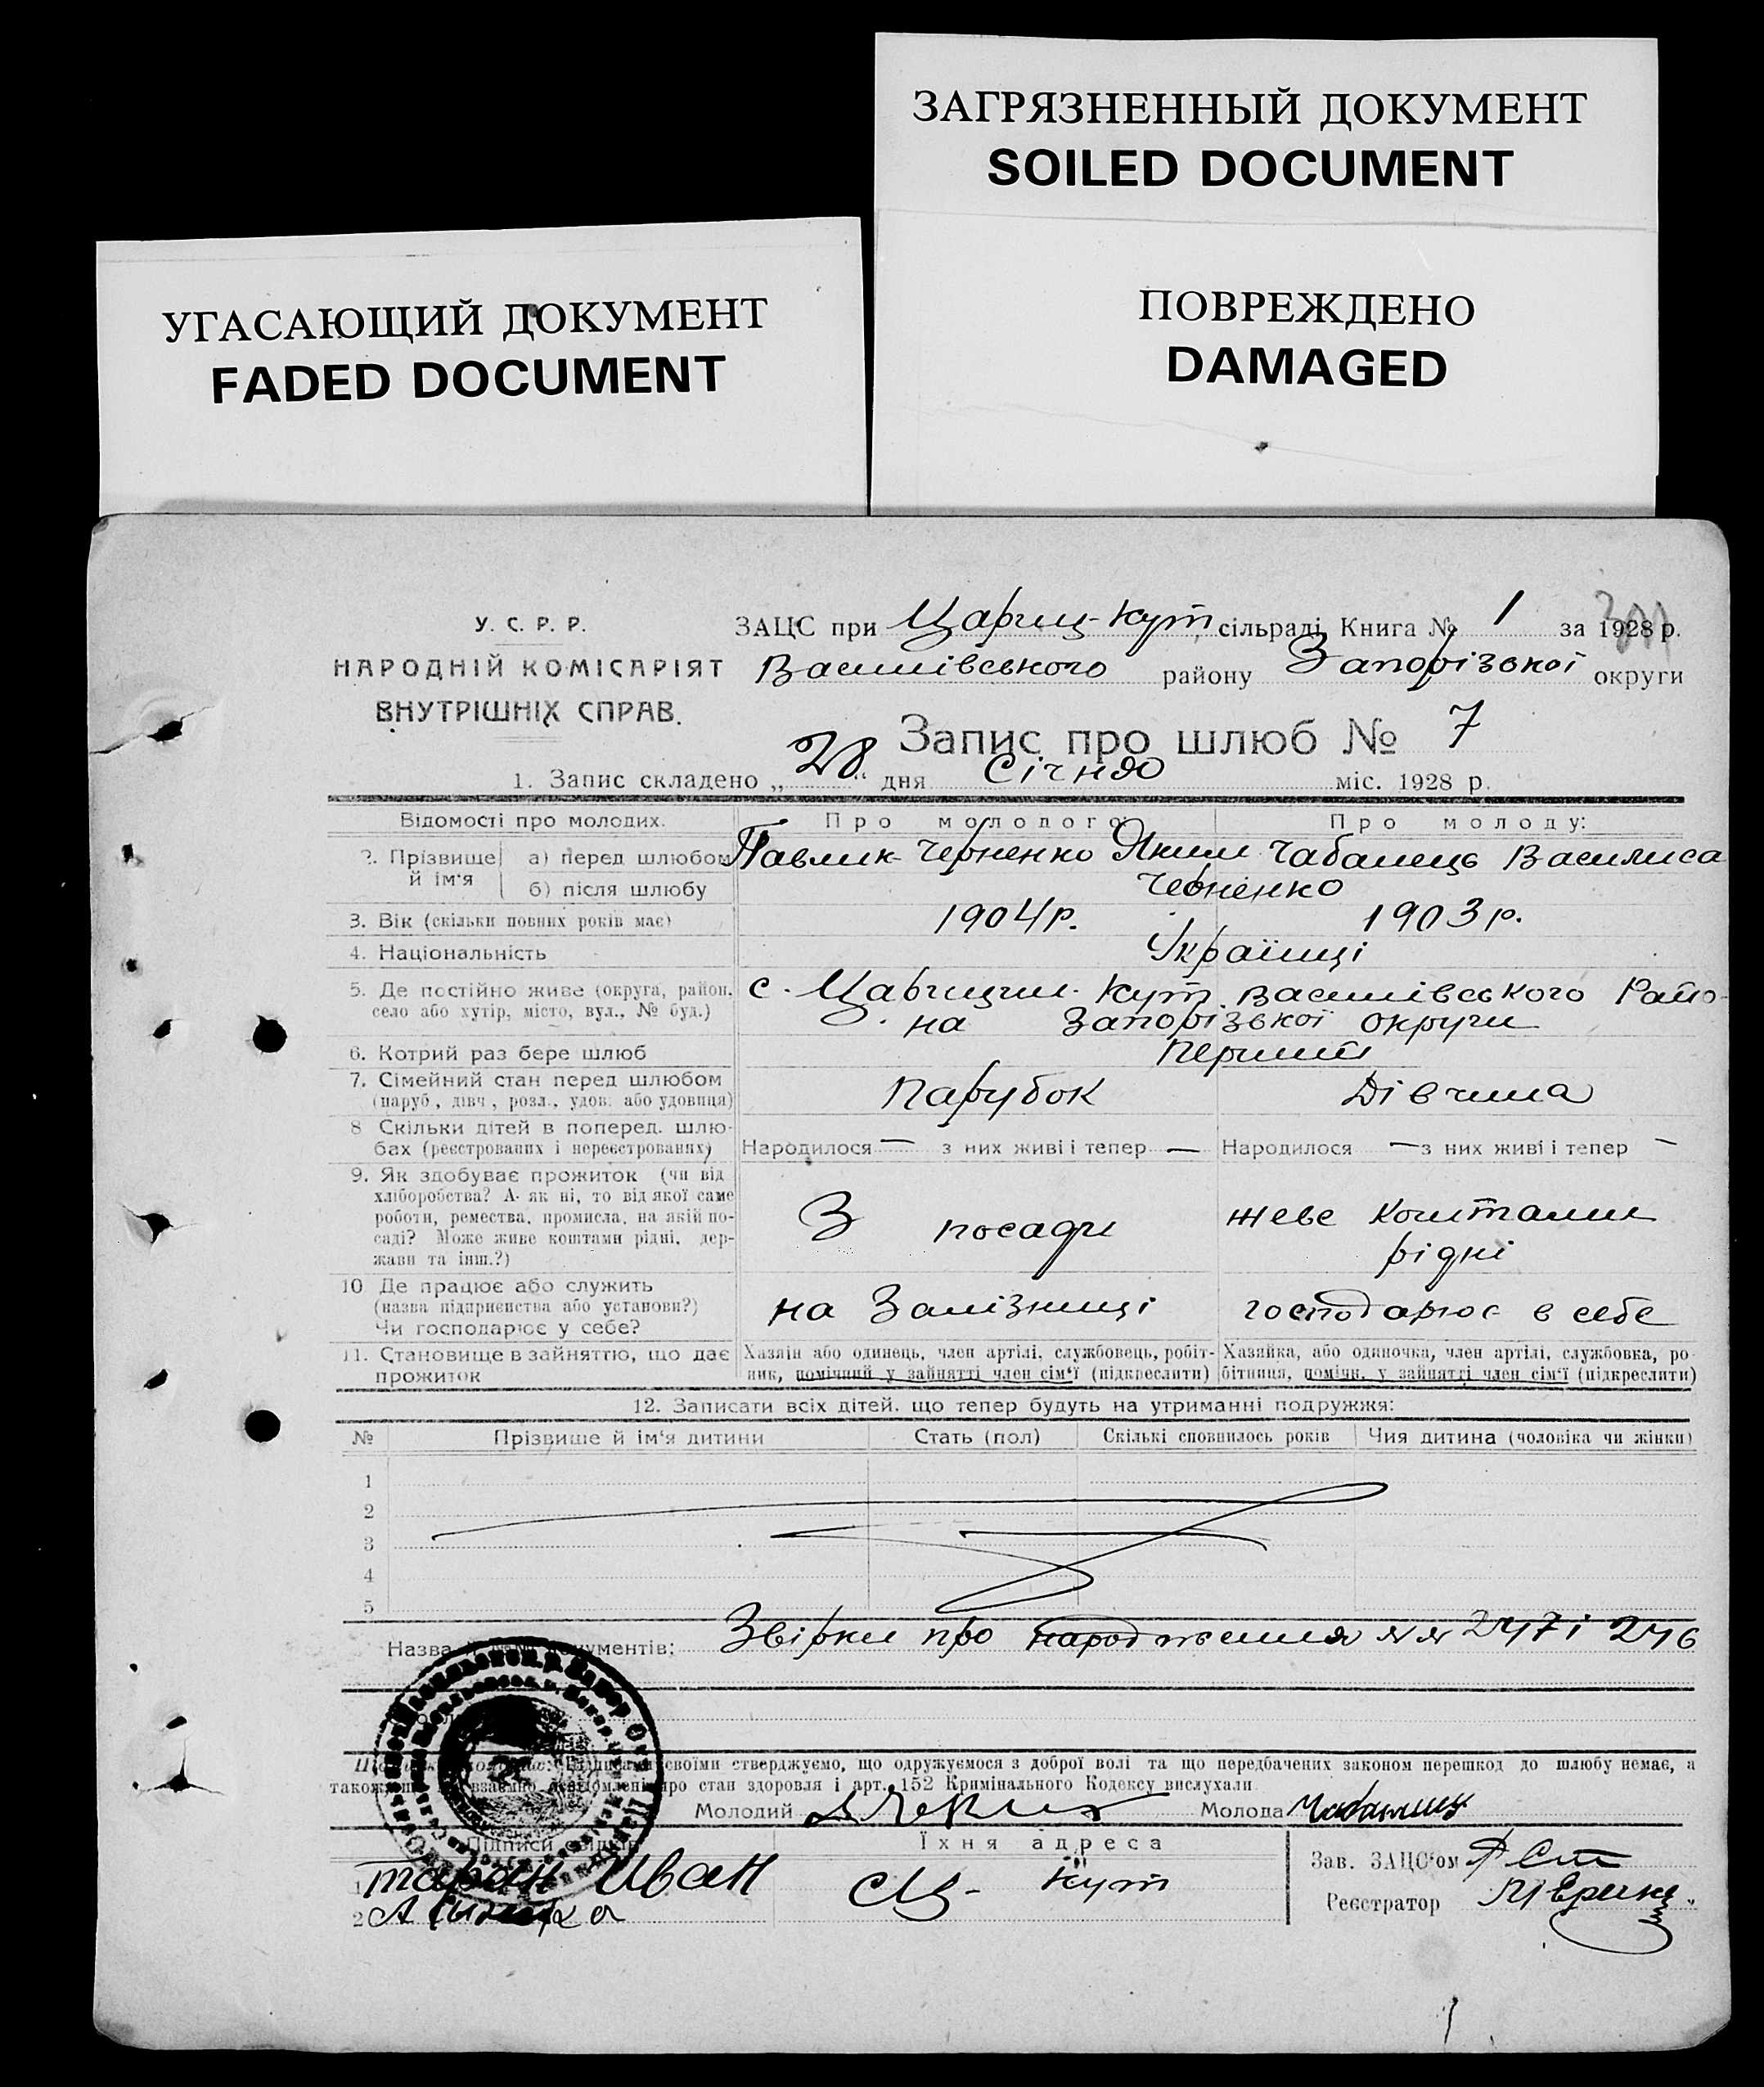 ЗАГРЯЗНЕННЫЙ ДОКУМЕНТ
SOILED DOCUMENT
УГАСАЮЩИЙ ДОКУМЕНТ
FADED DOCUMENT
ПОВРЕЖДЕНО
DAMAGED
У. С. Р. Р.
НАРОДНІЙ КОМІСАРІЯТ
ВНУТРІШНІХ СПРАВ.
ЗАЦС при Цариц-Кут сільраді Книга № 1 за 1928 р.
Василівського району Запорізької округи
Запис про шлюб № 7
1. Запис складено „28“ дня Січня міс. 1928 р.
Відомості про молодих. Про молодого: Про молоду:
2. Прізвище й ім'я а) перед шлюбом Павлик-Черненко Яким Чабанець Василиса
б) після шлюбу Черненко
3. Вік (скільки повних років має) 1904р. 1903р.
4. Національність Українці
5. Де постійно живе (округа, район, с. Царицин. Кут. Василівського Райо-
село або хутір, місто, вул., № буд.) на Запорізької округи
6. Котрий раз бере шлюб Перший
7. Сімейний стан перед шлюбом Парубок Дівчина
(паруб., дівч., розл., удов. або удовиця)
8 Скільки дітей в поперед. шлю-
бах (реєстрованих і нереєстрованих) Народилося — з них живі і тепер — Народилося — з них живі і тепер —
9. Як здобуває прожиток (чи від
хліборобства? А як ні, то від якої саме
роботи, ремества, промисла, на якій по-
саді? Може живе коштами рідні, дер-
жави та інш.?)
З посади
жеве коштами
рідні
10 Де працює або служить
(назва підприємства або установи?)
Чи господарює у себе?
на Залізниці господарює в себе
11. Становище в зайняттю, що дає
прожиток
Хазяїн або одинець, член артілі, службовець, робіт-
ник, помічний у зайнятті член сім'ї (підкреслити)
Хазяйка, або одиночка, член артілі, службовка, ро-
бітниця, помічн. у зайнятті член сім'ї (підкреслити)
12. Записати всіх дітей, що тепер будуть на утриманні подружжя:
№ Прізвище й ім'я дитини Стать (пол) Скількі сповнилось років Чия дитина (чоловіка чи жінки)
1
2
3
4
5
Назва документів: Звірки про народження №№ 247 і 246
своїми стверджуємо, що одружуємося з доброї волі та що передбачених законом перешкод до шлюбу немає, а
також взаємно про стан здоровля і арт. 152 Кримінального Кодексу вислухали
Молодий Молода Чабанець
Підписи Їхня адреса
1 Таран Иван С Ц- Кут
2
Зав. ЗАЦС'ом
Реєстратор